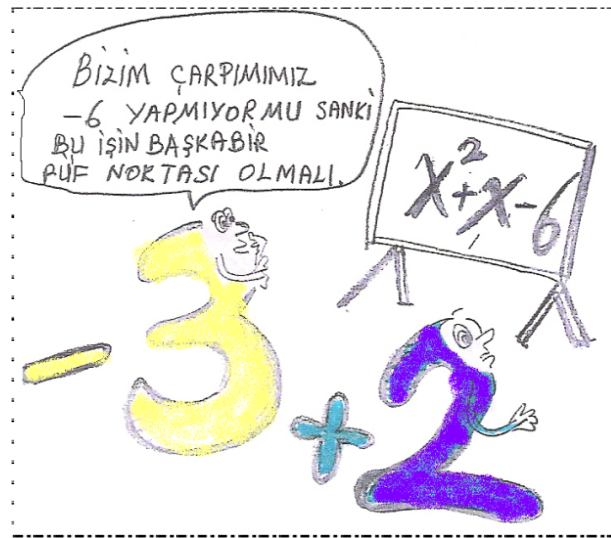 BİZİM ÇARPIMIMIZ
-6 YAPMIYOR MU SANKİ
BU İŞİN BAŞKABİR
PÜF NOKTASI OLMALI.
x²+x-6
-3
+2